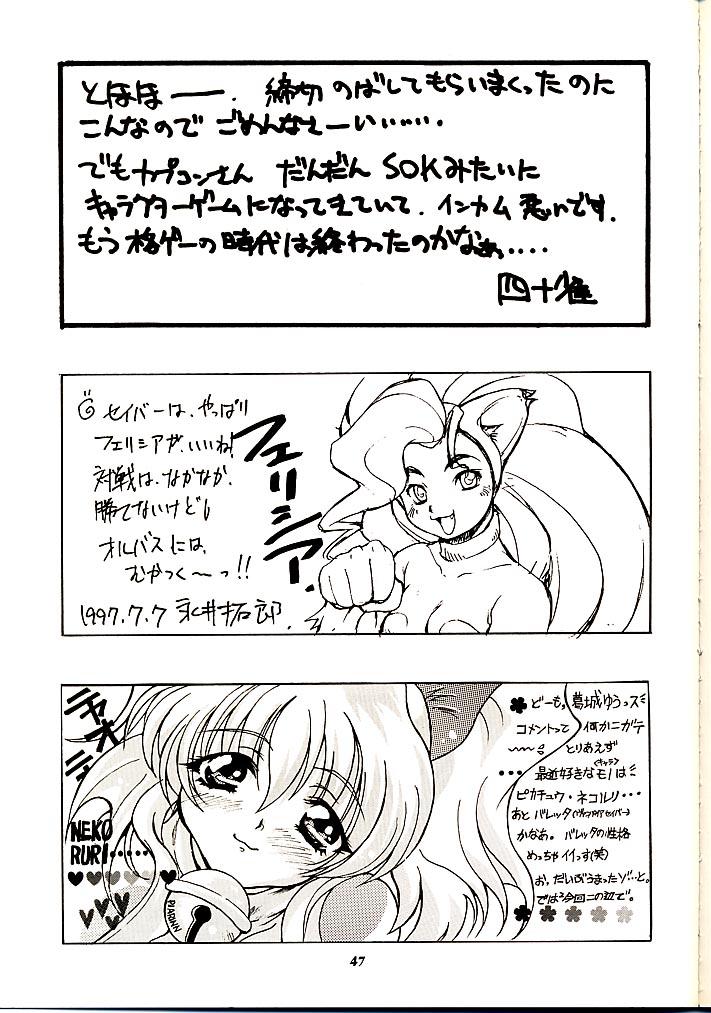 とほほ――. 締切 のばしてもらいまくったのに
こんなので ごめんなさーい……
でもカプコンさん だんだん SOKみたいに
キャラクターゲームになってきていて. インカム 悪いです.
もう 格ゲーの時代は終わったのかなぁ....
セイバーは、やっぱり
フェリシアが、いいね!
対戦は、なかなか、
勝てないけど
オルバスには、
むかつく〜っ!!
1997.7.7 永井拓郎
フェリシアー
ニャオ
NEKO
RURI……
PIARINN
どーも。葛城ゆうっス
コメントって 何かニガテ
とりあえず
… 最近好きなモノ(キャラ)は
ピカチュウ・ネコルリ・・・
あと バレッタ(ヴァンパイアセイバー)
かなあ。 バレッタの性格
めっちゃイイっす(笑)
お、だいぶうまったゾ…と。
ではう今回この辺で。
47